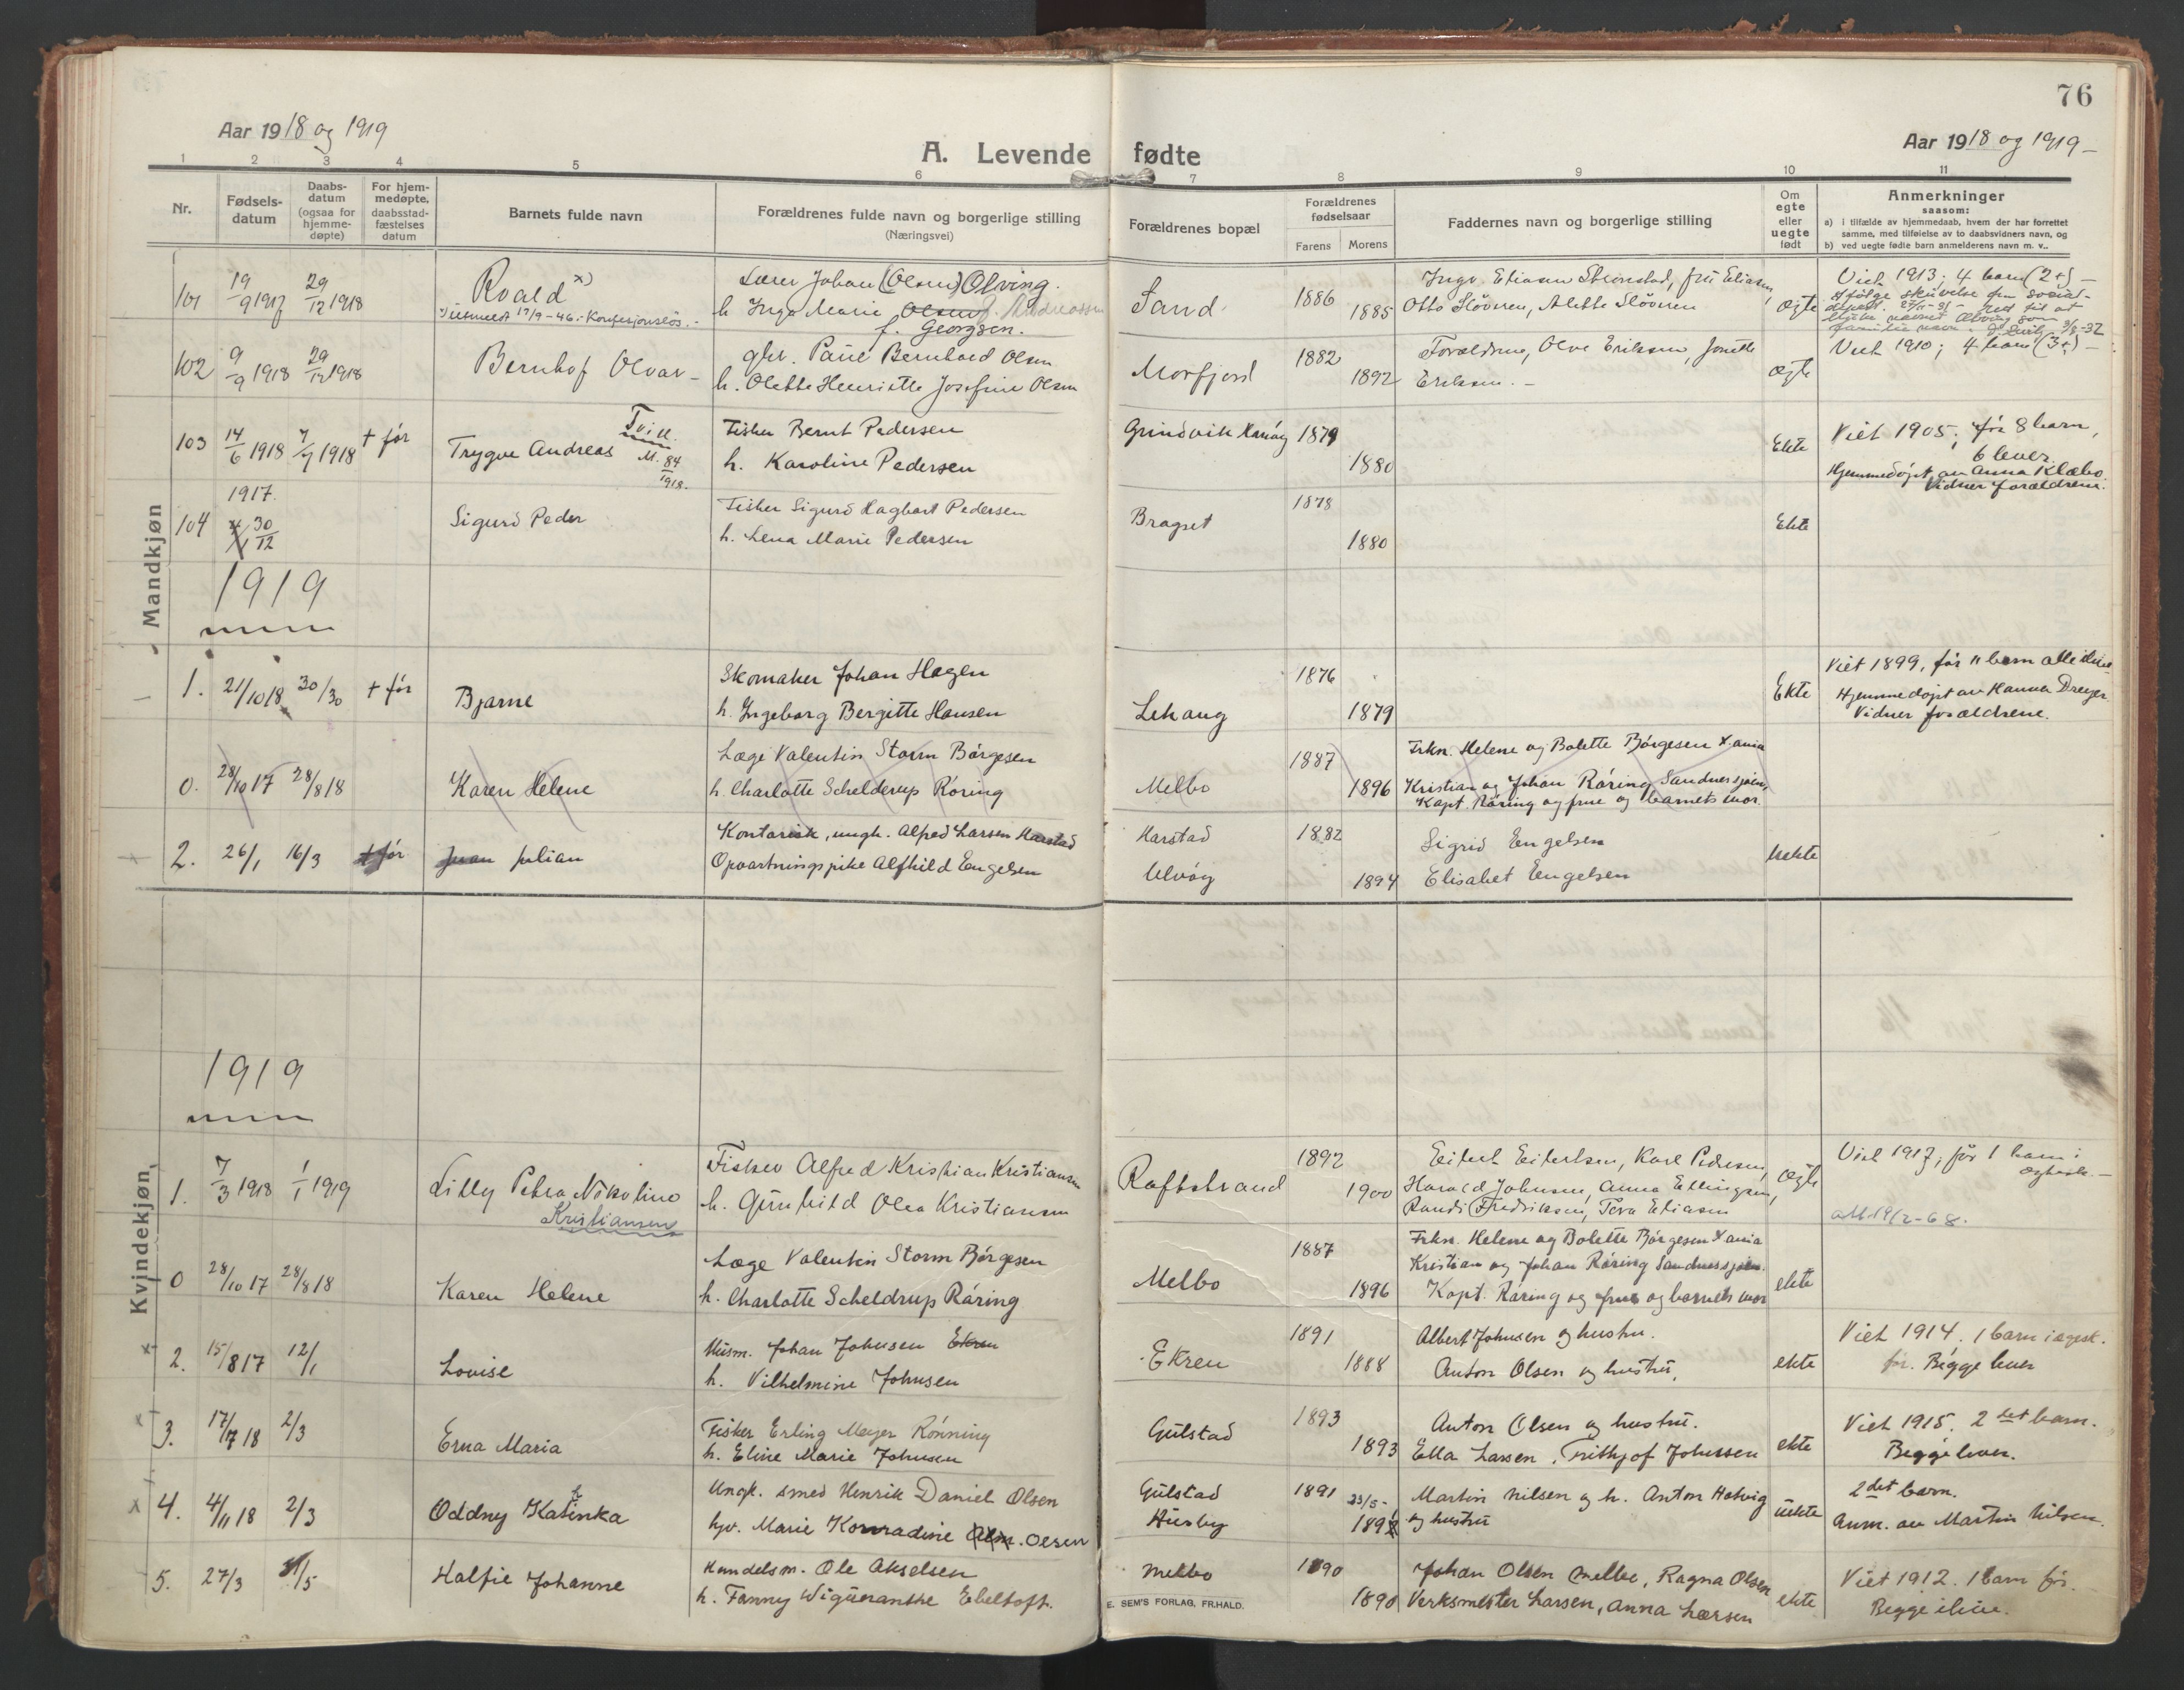 76
Aar 1918 og 1919
A. Levende fødte
Aar 1918 og 1919 –
1 2 3 4 5 6 7 8 9 10 11
Nr.
Fødsels-
datum
Daabs-
datum
(ogsaa for
hjemme-
døpte)
For hjem-
medøpte,
daabsstad-
fæstelses
datum
Barnets fulde navn
Forældrenes fulde navn og borgerlige stilling
(Næringsvei)
Forældrenes bopæl
Forældrenes
fødselsaar
Farens Morens
Faddernes navn og borgerlige stilling
Om
egte
eller
uegte
født
Anmerkninger
saasom:
a) i tilfælde av hjemmedaab, hvem der har forrettet
samme, med tilføielse av to daabsvidners navn, og
b) ved uegte fødte barn anmelderens navn m. v..
Mandkjøn
101 19/9 1917 29/12 1918 Roald x)
x) utmeldt 17/9-46.- Konfesjonsløs.-
Lærer Johan (Olsen) Olving.
h Inga Marie Olsen f. Andreassen
f. Georgsen.
Sand. 1886 1885
Ingv. Eliasen Steinstad, fru Eliasen,
Otto Sløveren, Alette Sløveren
Ægte
Viet 1913; 4 barn (2+) –
102 9/9 1918 29/12 1918 Bernhof Olvar –
gbr. Paul Bernhard Olsen
h. Olette Henriette Josefine Olsen
Morfjord 1882 1892
Forældrene, Olve Eriksen, Jonette
Eriksen. –
Ægte
Viet 1910; 4 barn (3+) –
103 14/6 1918 7/7 1918 + før Trygve Andreas Tvill.
M. 84/1918.
Fisker Bernt Pedersen
h. Karoline Pedersen
Grundvik Hanøy 1879 1880
Ekte
Viet 1905; før 8 barn,
6 lever.
Hjemmedøpt av Anna Klæbo
Vidner forældrene.
1917.
104 30/12 Sigurd Peder
Fisker Sigurd Hagbart Pedersen
h. Lena Marie Pedersen
Bragset 1878 1880
Ekte
1919
1. 21/10 18 30/30 + før Bjarne
Skomaker Johan Hagen
h. Ingeborg Bergitte Hansen
Lekang 1876 1879
Ekte
Viet 1899, før 11 barn alle ilive
Hjemmedøpt av Hanna Dreyer
Vidner forældrene.
0. 28/10 17 28/8 18 Karen Helene
Læge Valentin Storm Børgesen
h. Charlotte Schelderup Røring
Melbo 1887 1896
Frkn. Helene og Bolette Børgesen X.ania
Kristian og Johan Røring Sandnessjøen,
Kapt. Røring og frue og barnets mor.
2. 26/1 16/3 + før Johan Julian
Kontorist, ungk. Alfred Larsen Harstad
Opvartningspike Alfhild Engelsen
Harstad 1882
Ulvøy 1894
Sigrid Engelsen
Elisabet Engelsen
Uekte
Kvindekjøn.
1919
1. 7/3 1918 1/1 1919 Lilly Petra Nikoline
Kristiansen
Fisker Alfred Kristian Kristiansen
h. Gunhild Olea Kristiansen
Raftstrand 1892 1900
Eilert Eilertsen, Karl Pedersen,
Harald Johnsen, Anna Ellingsen,
Randi Fredriksen, Tora Eliasen
Ægte
Viet 1917; før 1 barn i
ægtesk. –
att 19/2-68.
0 28/10 17 28/8 18 Karen Helene
Læge Valentin Storm Børgesen
h. Charlotte Scheldrup Røring
Melbo 1887 1896
Frkn. Helene og Bolette Børgesen X.ania
Kristian og Johan Røring Sandnessjøen.
Kapt. Røring og frue og barnets mor
ekte
2. 15/8 17 12/1 Lovise
Husm. Johan Johnsen Ekren
h. Vilhelmine Johnsen
Ekren 1891 1888
Albert Johnsen og hustru.
Anton Olsen og hustru,
ekte
Viet 1914. 1 barn i ægesk.
før. Begge lever
3. 17/7 18 2/3 Erna Maria
Fisker Erling Meyer Rønning
h. Eline Marie Johnsen
Gulstad 1893 1893
Anton Olsen og hustru.
Ella Larsen, Frithjof Johnssen
ekte
Viet 1915, 2det barn.
Begge lever.
4. 4/11 18 2/3 Oddny Kathinka
Ungk. smed Henrik Daniel Olsen
hjv. Marie Konradine Olsen
Gulstad 1891
Husby 23/5- 1892
Martin Nilsen og h. Anton Hotvig
og hustru
uekte
2det barn.
Anm. av Martin Nilsen.
5. 27/3 11/5 Halfie Johanne
Handelsm. Ole Akselsen
h. Fanny Wigueranthe Ebeltoft.
Melbo 1890 1890
Johan Olsen Melbo, Ragna Olsen
Verksmester Larsen, Anna Larsen
ekte
Viet 1912. 1 barn før.
Begge ilive.
E. SEM'S FORLAG, FR.HALD.